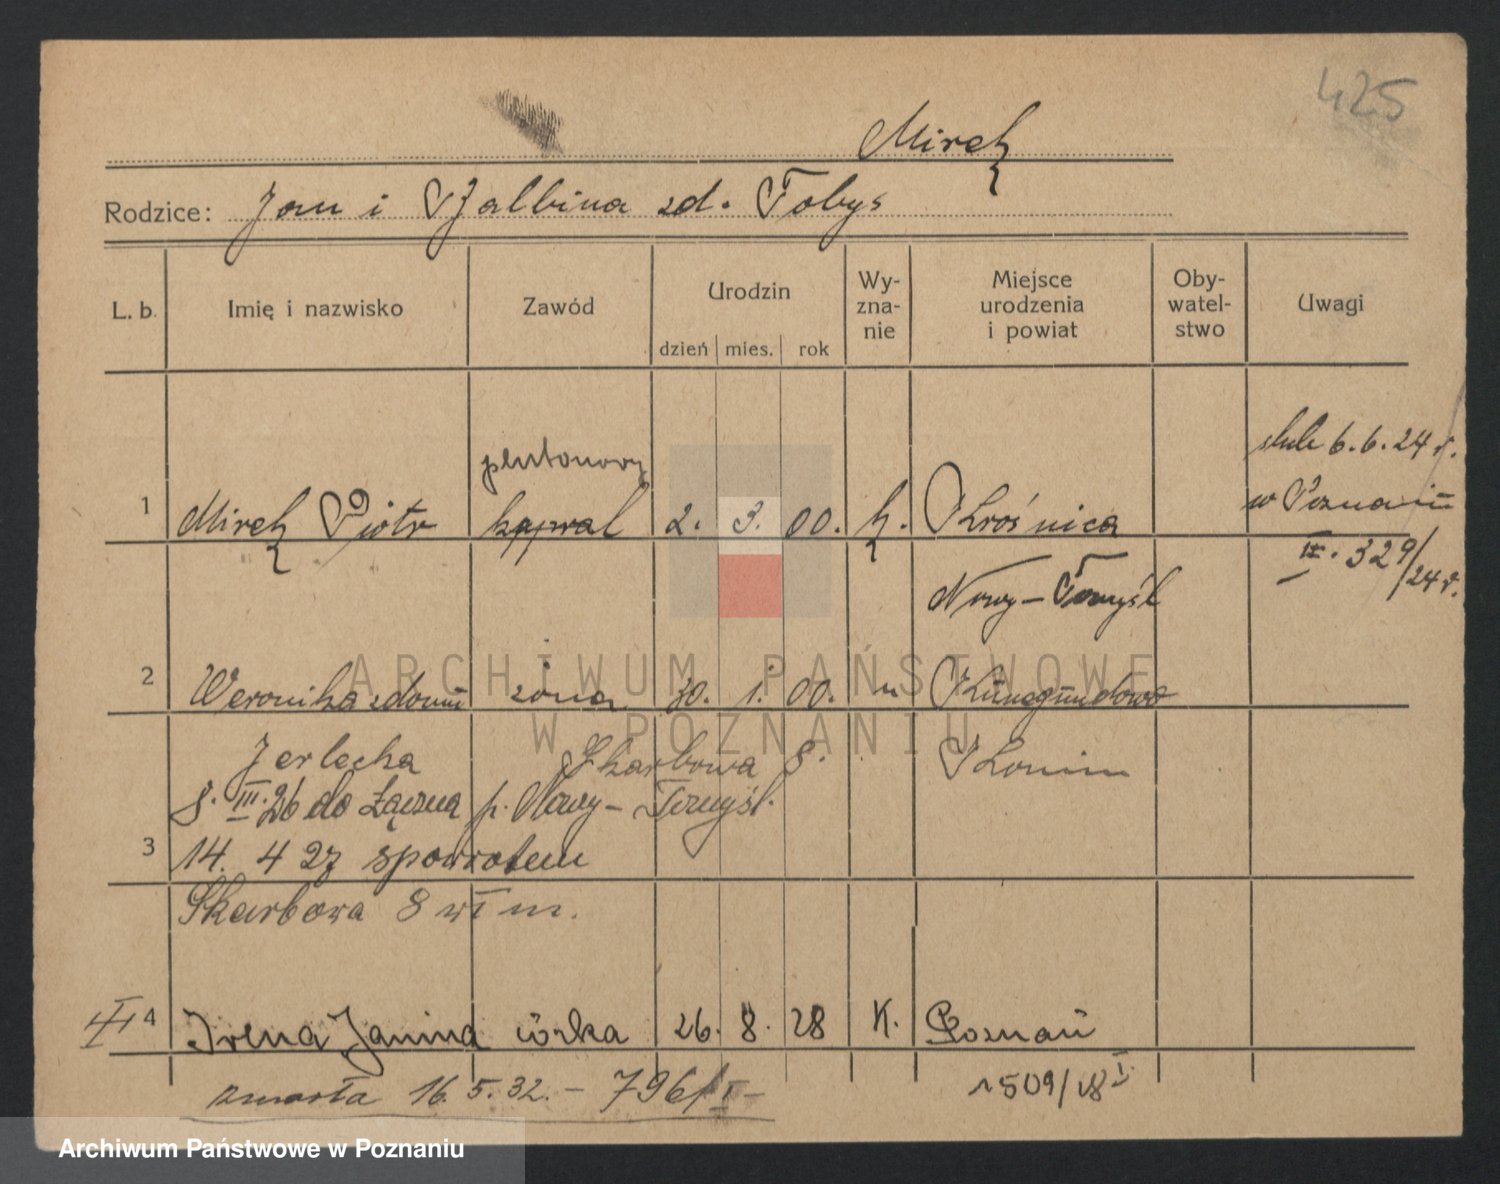 425
Mirek
Rodzice: Jan i Balbina zd. Tobys
L. b. Imię i nazwisko Zawód Urodzin dzień mies. rok Wy-zna-nie Miejsce urodzenia i powiat Oby-watel-stwo Uwagi
plutonowy ślub 6.6.24 r.
1 Mirek Piotr kapral 2. 3. 00. k. Krośnica w Poznaniu
III. 329/24 r.
Nowy-Tomyśl
2 Weronika zdomu żona 30. 1. 00. " Kunegundowo
Jerlecka Skarbowa 8. Konin
8. III. 26 do Łączna p. Nowy-Tomyśl.
3 14. 4 27 spowrotem
Skarbowa 8 wł m.
III 4 Irena Janina córka 26. 8. 28 K. Poznań
zmarła 16.5.32. - 796/II- 1509/28 I
ARCHIWUM PAŃSTWOWE
W POZNANIU
Archiwum Państwowe w Poznaniu